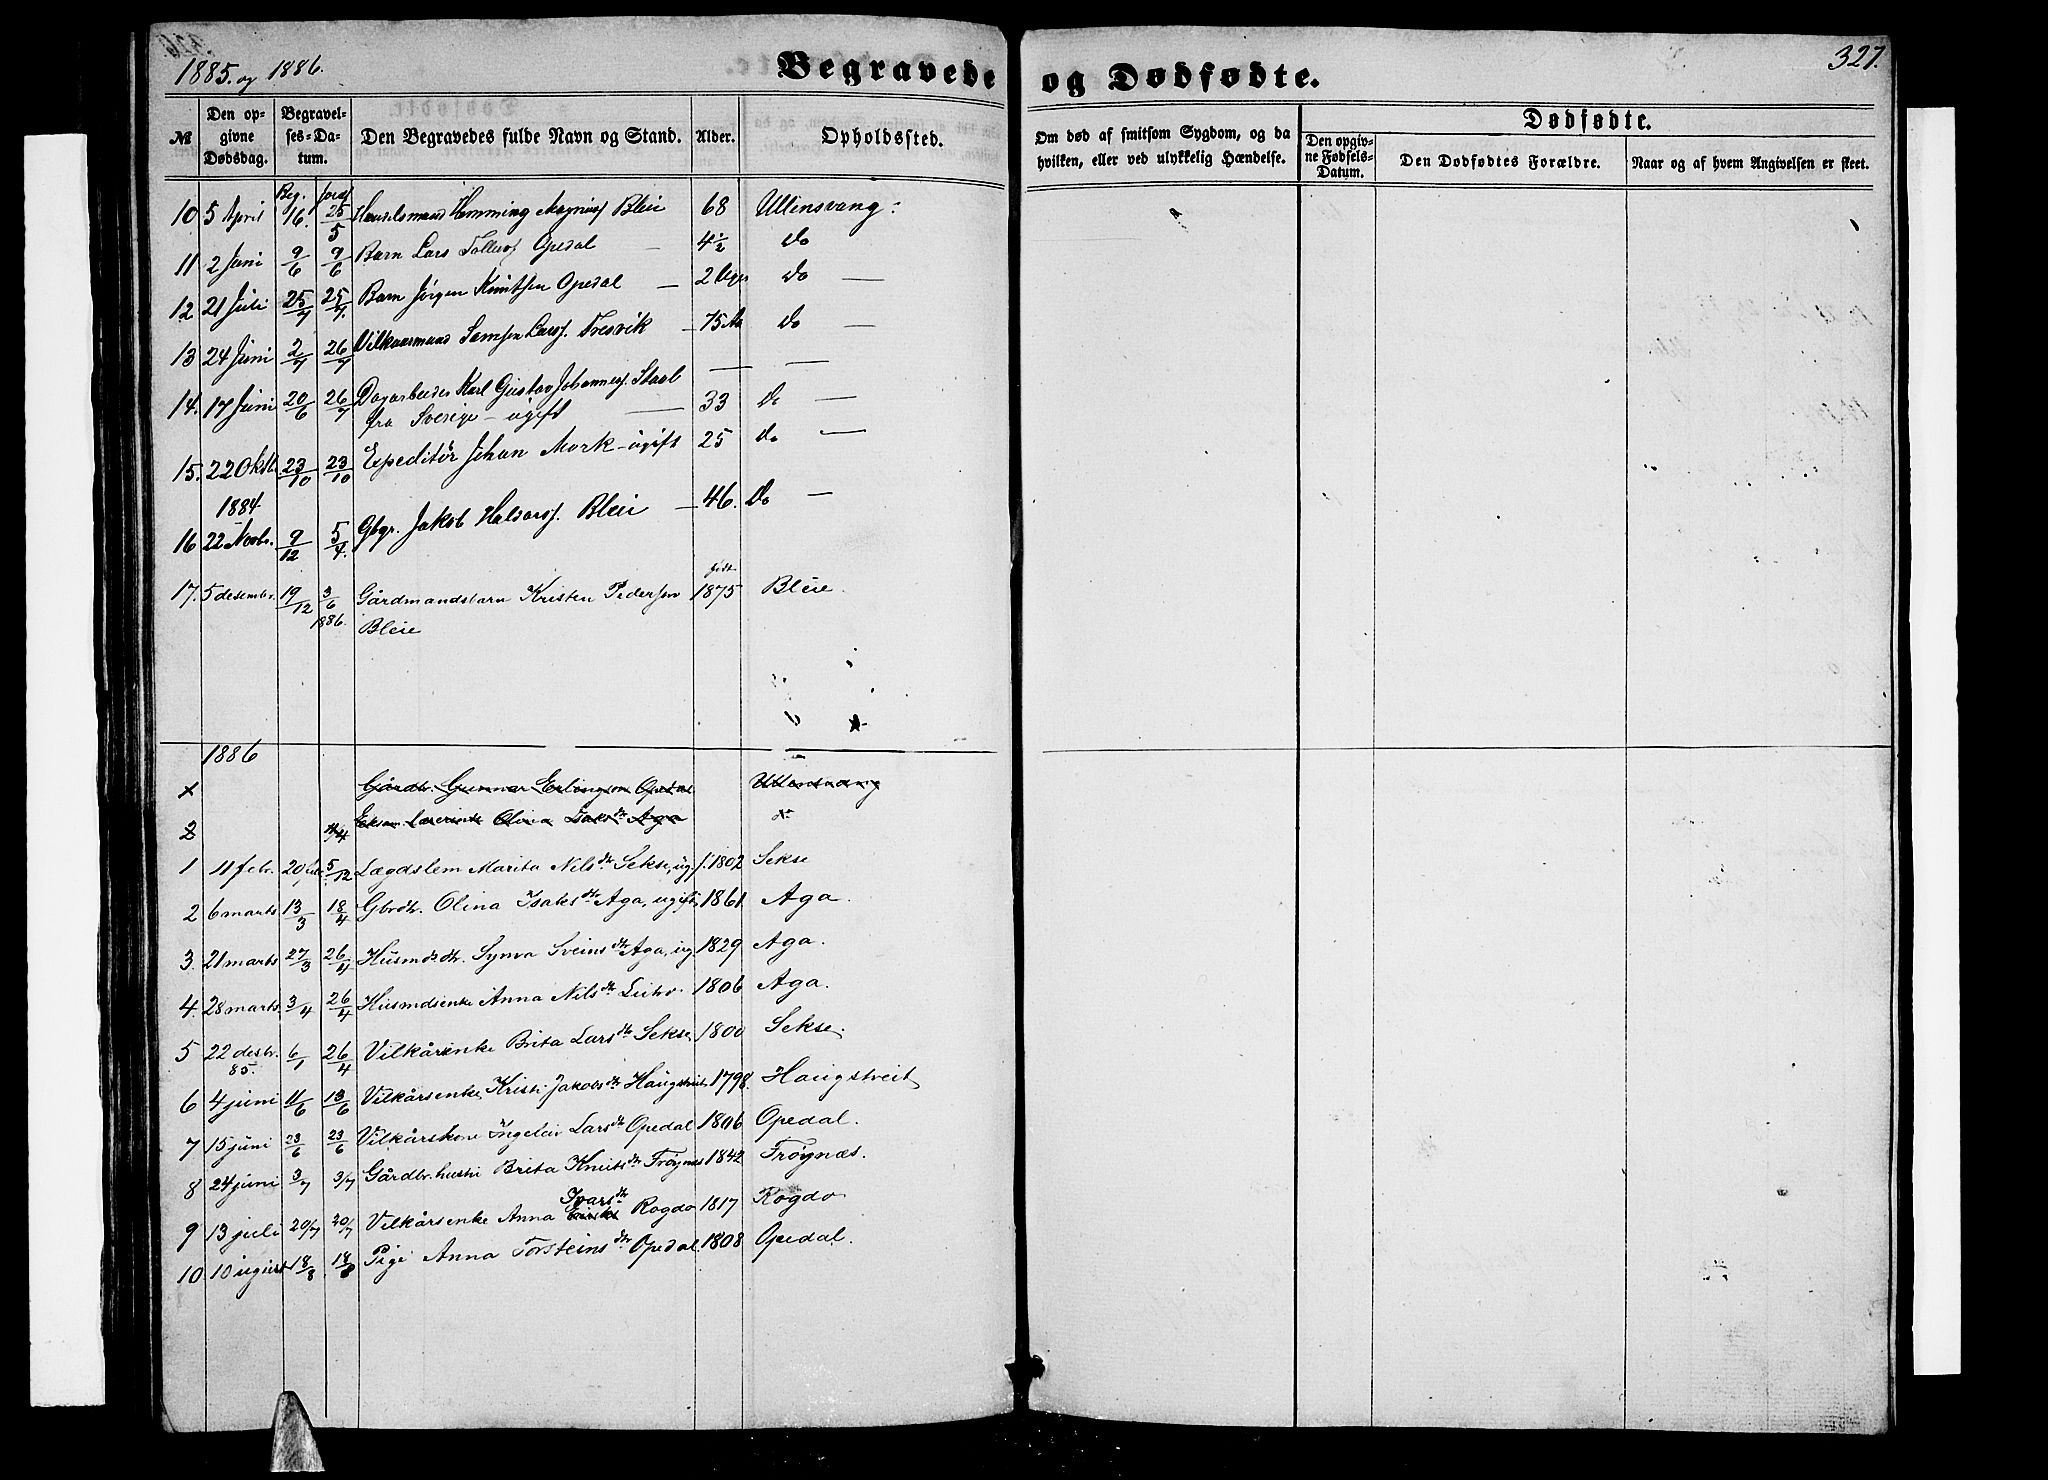 1885. og 1886.
Begravede og Dødfødte.
327.
№
Den opgivne Dødsdag.
Begravelses-Datum.
Den Begravedes fulde Navn og Stand.
Alder.
Opholdssted.
Om død af smitsom Sygdom, og da hvilken, eller ved ulykkelig Hændelse.
Dødfødte.
Den opgivne Fødsels-Datum.
Den Dødfødtes Forældre.
Naar og af hvem Angivelsen er skeet.
Beg. Jordf
10 5 April 16. 25/5 Huusmand Hemming Magnusf Bleie 68 Ullensvang:
11 2 Juni 9/6 9/6 Barn Lars Tollefs Opedal — 4½ Do
12 21 Juli 25/7 25/7. Barn Jørgen Knutsen Opedal — 2 Uger Do —
13 24 Juni 2/7 26/7 Vilkaarmand Samson Larsf. Tresvik — 75 Aar Do —
14. 17 Juni 20/6 26/7 Dagarbeider Karl Gustav Johannesf. Staal — —
fra Sverige — ugift — 33 Do —
15. 22 Oktb 23/10 23/10 Expeditør Johan Mork — ugift 25 Do —
1884
16 22 Novbr. 9/12 5/4. Gbgr. Jakob Halvorsf. Bleie — 46. Do —
født
17. 5 desembr. 19/12 3/6 1886. Gårdmandsbarn Kristen Pedersen 1875 Bleie.
Bleie
1886
1 Gårdbr. Gunnar Erlingson Opedal Ullensvang
2 4/4 Eksam. Lærerinde Olina Isaksdtr Aga do
1 11 febr. 20 feb. 5/12 Lægdslem Marita Nilsdtr Sekse, ug. f. 1802 Sekse
2 6 marts 13/3 18/4 Gbrdtr. Olina Isaksdtr Aga, ugift, 1861 Aga.
3. 21 marts 27/3 26/4 Husmdsdtr. Synva Sveinsdtr Aga, ug. 1829 Aga.
4. 28 marts 3/4 26/4 Husmdsenke Anna Nilsdtr 1806 Aga.
5 22 desbr. 85. 6/1 26/4 Vilkårsenke Brita Larsdtr Sekse, 1800 Sekse.
6 4 juni 11/6 13/6 Vilkårsenke Kristi Jakobsdtr Haugstveit 1798. Haugstveit
7 15 juni 23/6 23/6 Vilkårskone Ingeleiv Larsdtr Opedal 1806 Opedal.
8 24 juni 3/7 3/7 Gårdbr. hustru Brita Knutsdtr Frøynæs 1842 Frøynæs.
Ivarsdtr
9 13 juli 20/7 20/7 Vilkårsenke Anna Eiriks Rogdo 1817 Rogdo
10 10 august 18/8 18/8 Pige Anna Torsteinsdtr Opedal. 1808 Opedal.